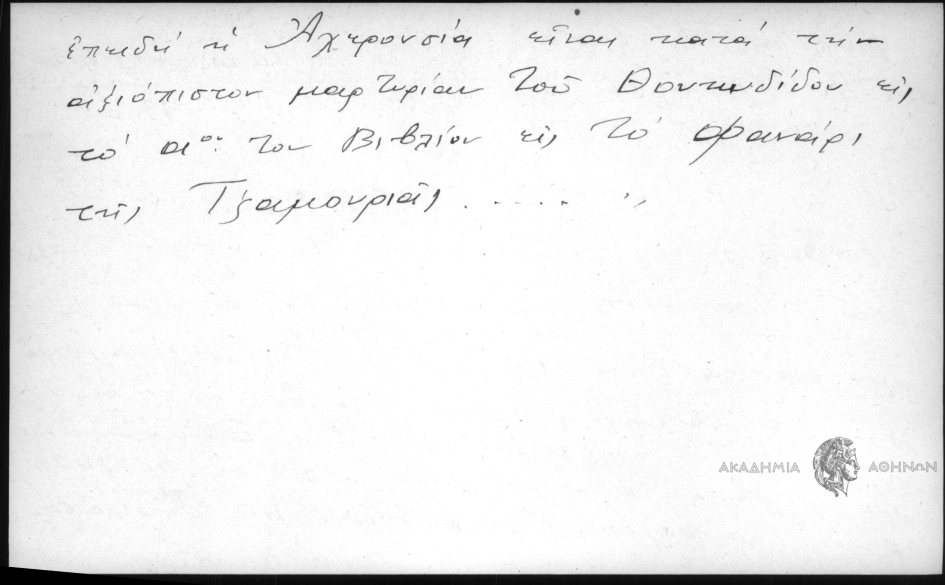 ἐπειδή ἡ Ἀχερουσία εἶναι κατά τήν
ἀξιόπιστον μαρτυρίαν τοῦ Θουκυδίδου εἰς
τό αον: του Βιβλίον εἰς τό Φανάρι
τῆς Τζαμουριᾶς ..... ,,
ΑΚΑΔΗΜΙΑ ΑΘΗΝΩΝ